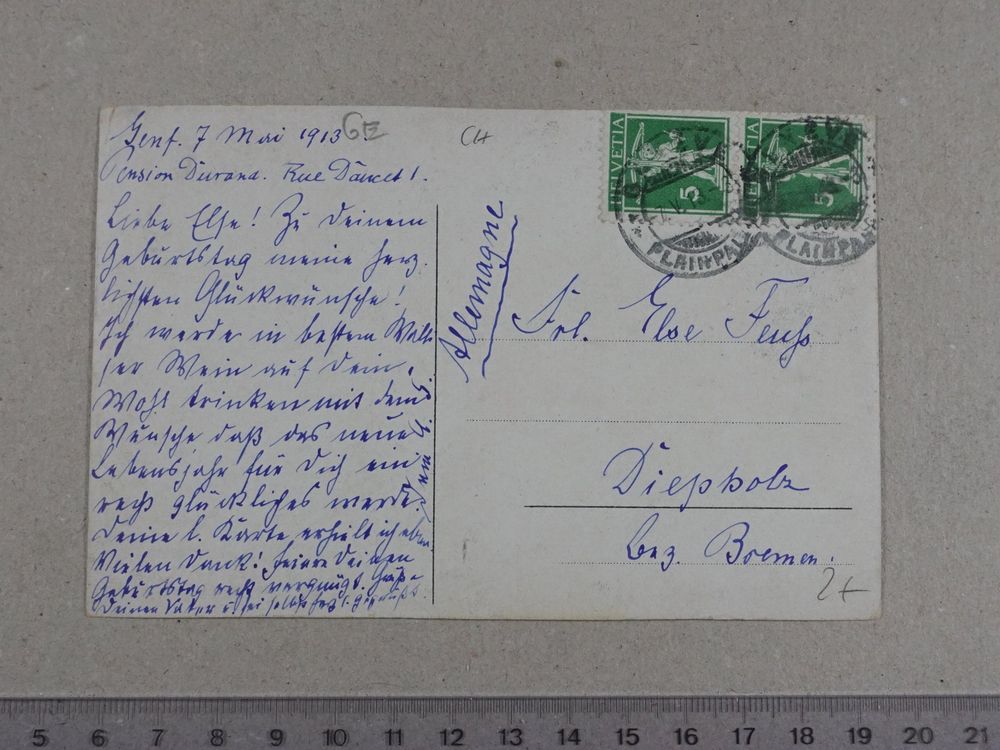 Genf. 7 Mai 1913
GE
CH
Pension Durand. Rue Dancet 1.
Liebe Else! Zu Deinem
Geburtstag meine herz-
lichsten Glückwünsche!
Ich werde in bestem Walli-
ser Wein auf Dein
Wohl trinken mit dem
Wunsche daß das neue
Lebensjahr für Dich ein
recht glückliches werde.
Deine l. Karte erhielt ich eben
Vielen Dank! Feiere Deinen
Geburtstag recht vergnügt. Grüße
Deinen Vater u. sei selbst herzl. gegrüßt.
HELVETIA
5
HELVETIA
5
PLAINPAL
PLAINPAL
Allemagne
Frl. Else Fuhs
Diepholz
bez. Bremen.
2+
5 6 7 8 9 10 11 12 13 14 15 16 17 18 19 20 21